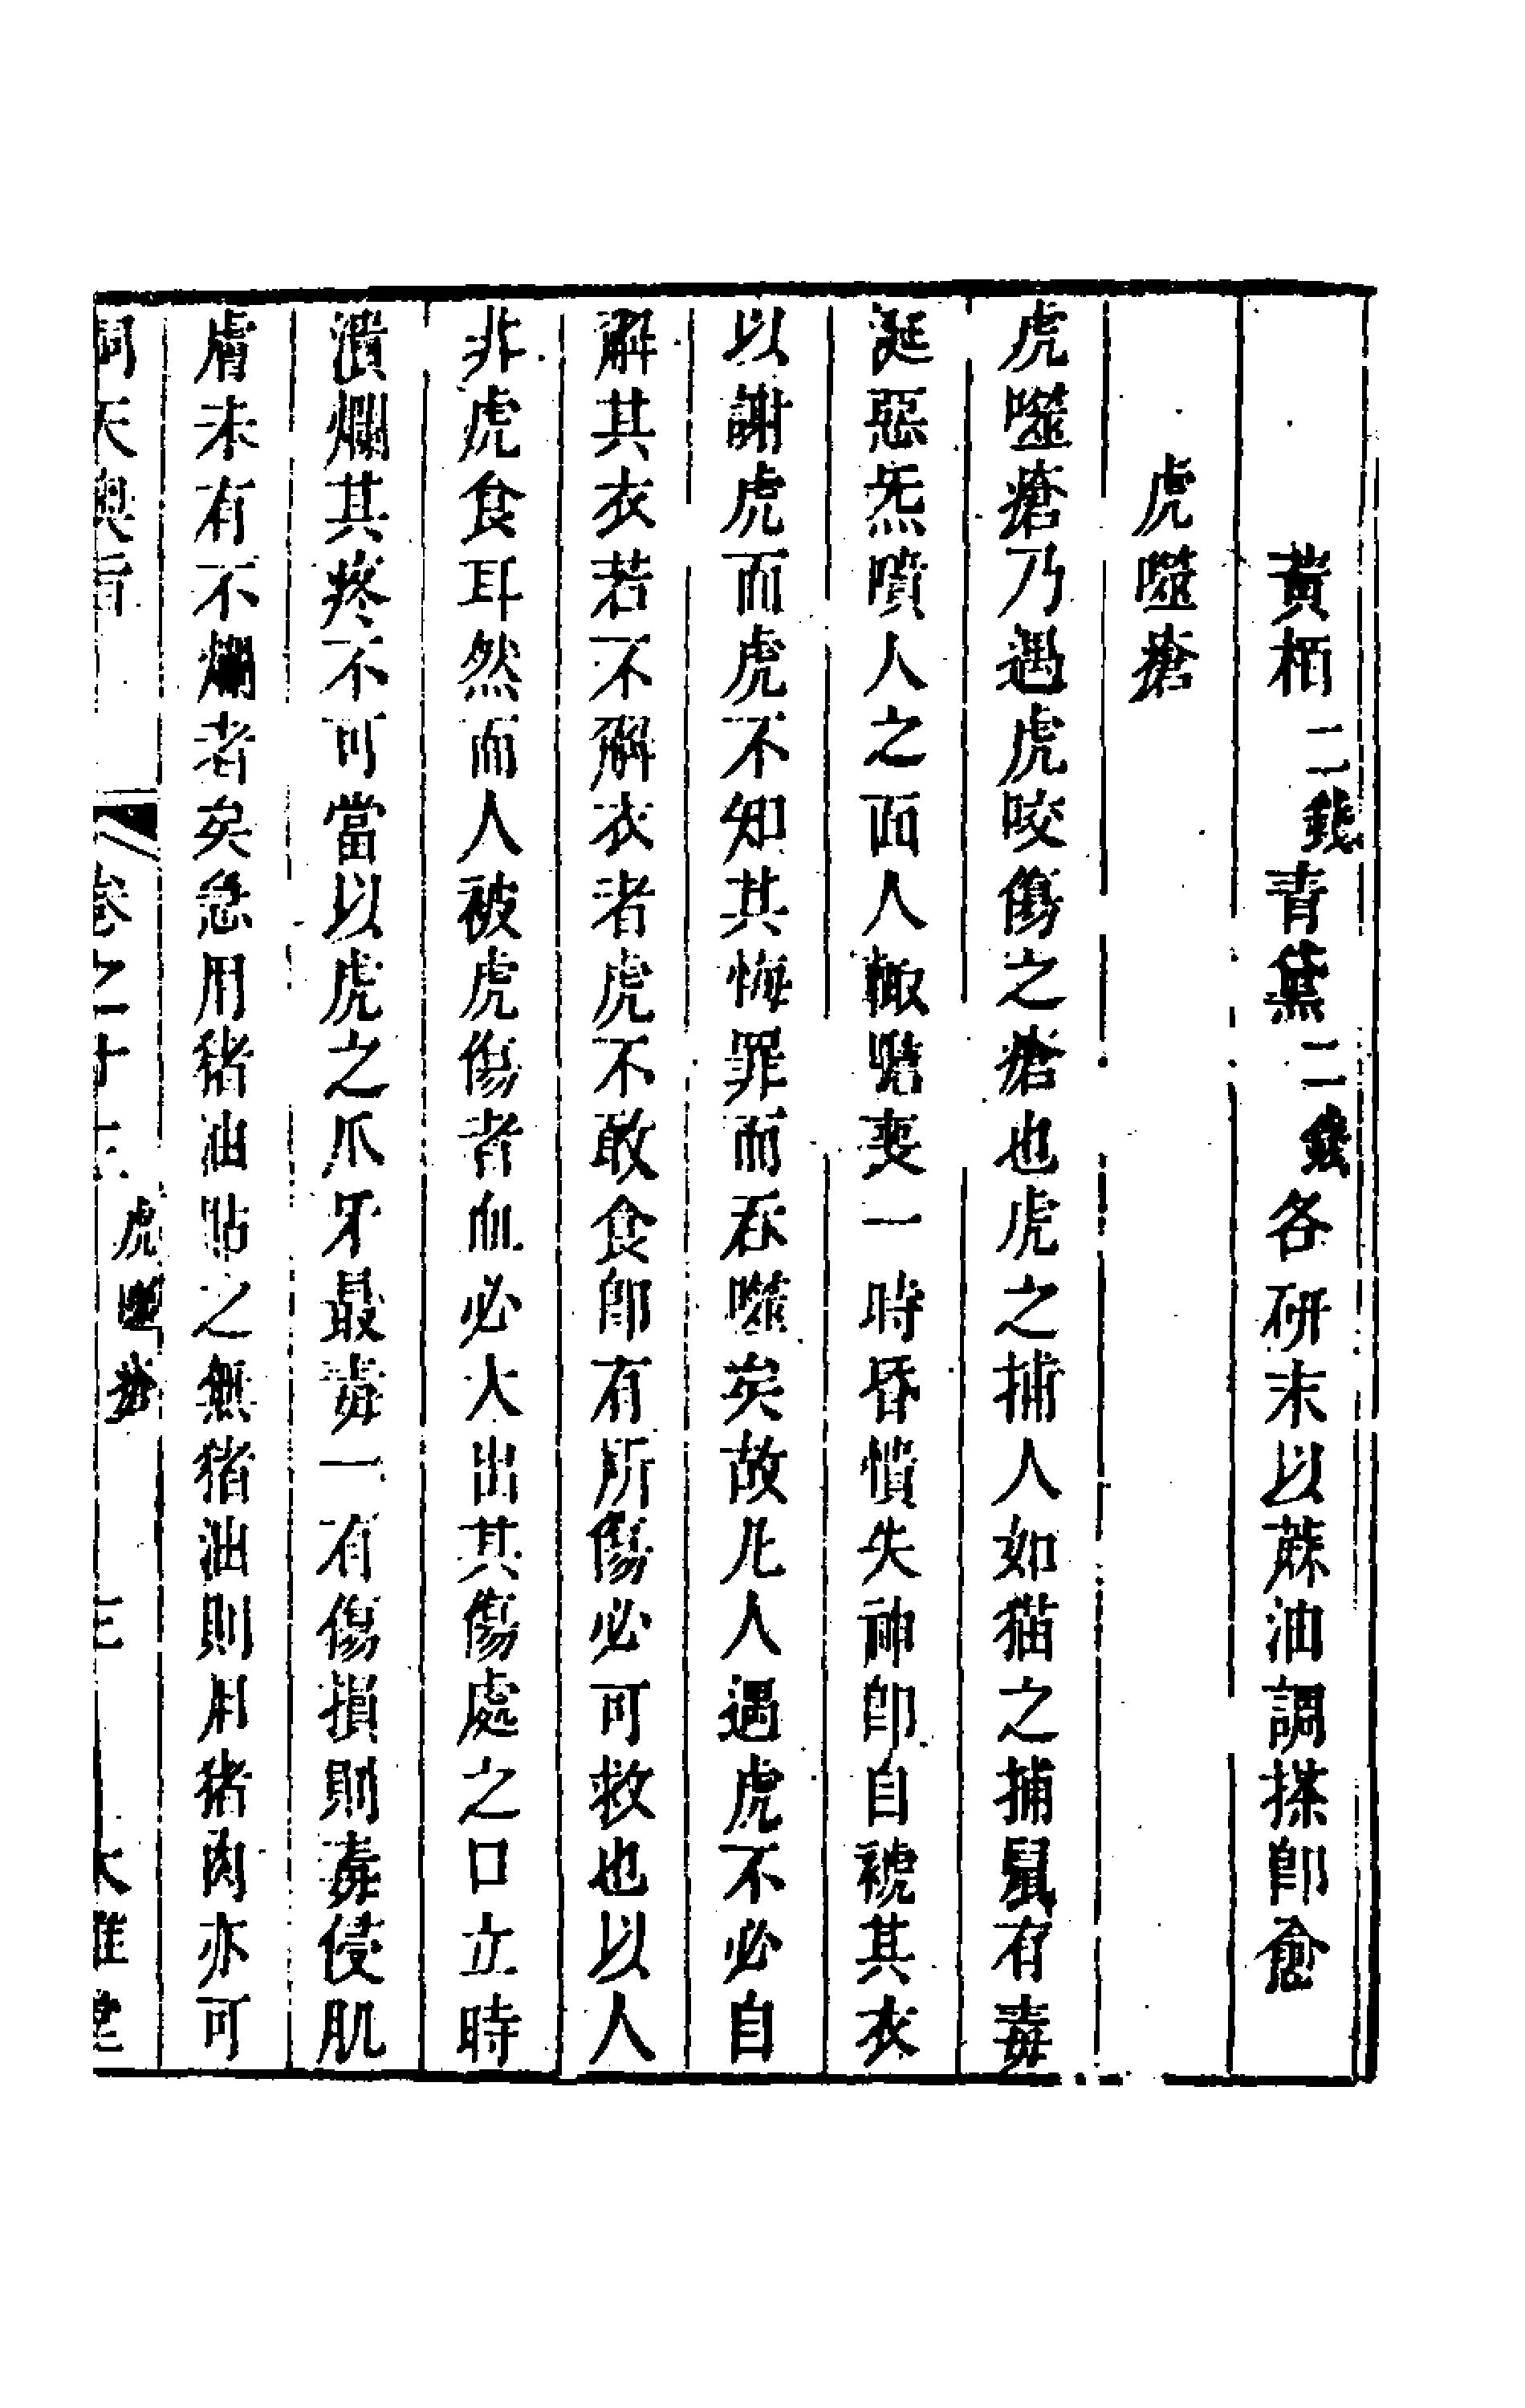 黃栢二錢青黛二錢各研末以蔴油調搽卽愈
虎噬瘡
虎噬瘡乃遇虎咬傷之瘡也虎之捕人如猫之捕鼠有毒
涎惡炁噴人之面人輙嚔喪一時昏憒失神卽自褫其衣
以謝虎而虎不知其悔罪而吞噬矣故凢人遇虎不必自
觧其衣若不觧衣者虎不敢食卽有所傷必可救也以人
非虎食耳然而人被虎傷者血必大出其傷處之口立時
潰爛其疼不可當以虎之爪牙最毒一有傷損則毒侵肌
膚未有不爛者矣急用猪油貼之無猪油則用猪肉亦可
洞天奥旨 卷之十三 虎噬瘡 三 大雅堂